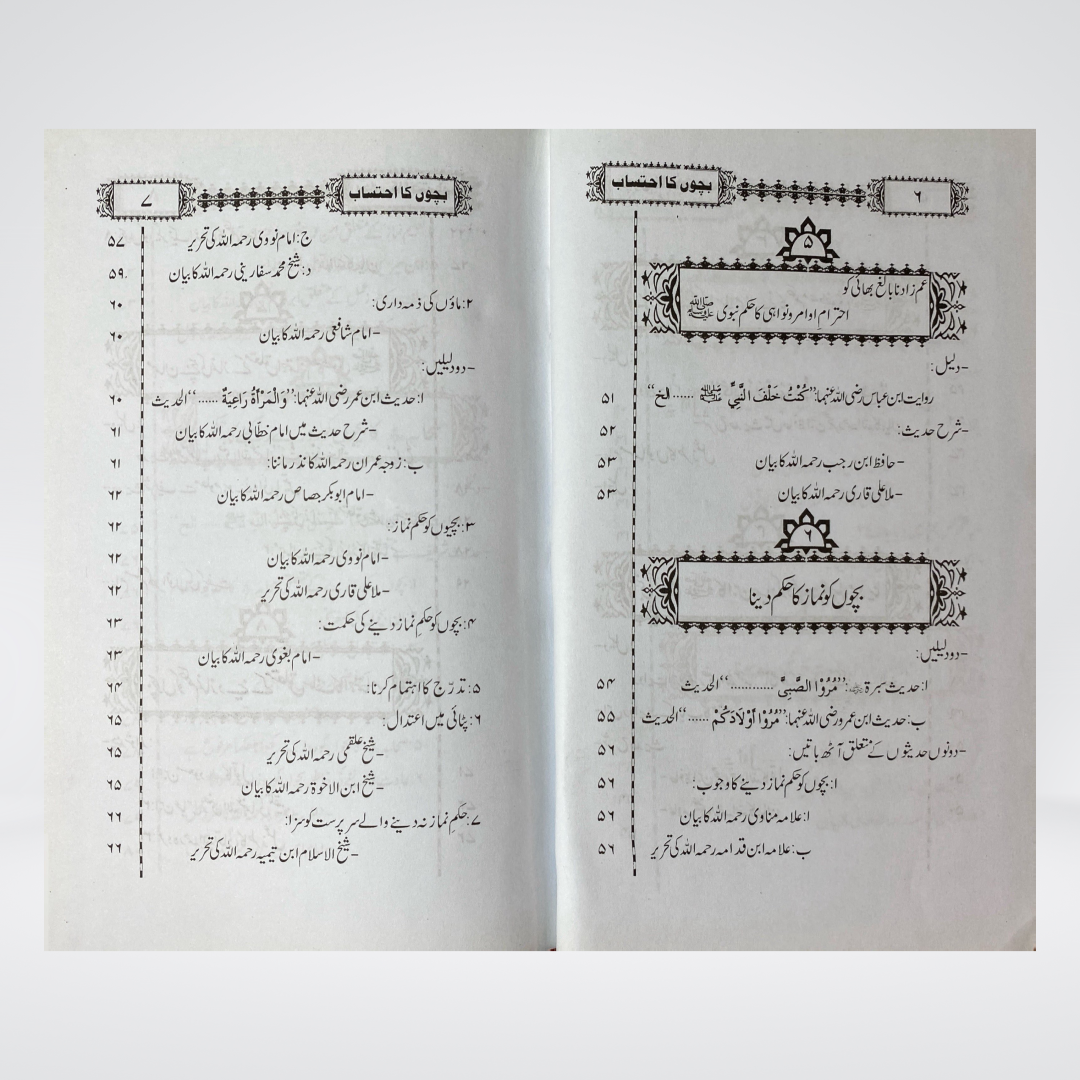 بچوں کا احتساب ۶
۵
عم زاد نابالغ بھائی کو
احترامِ اوامر و نواہی کا حکم نبوی ﷺ
-دلیل:
روایت ابن عباس رضی اللہ عنہما: ”كُنْتُ خَلْفَ النَّبِيِّ ﷺ ...... الخ“ ۵۱
-شرح حدیث: ۵۲
-حافظ ابن رجب رحمہ اللہ کا بیان ۵۳
-ملا علی قاری رحمہ اللہ کا بیان ۵۳
۶
بچوں کو نماز کا حکم دینا
-دو دلیلیں:
ا: حدیث سبرۃ رضی اللہ عنہ: ”مُرُوْا الصَّبِيَّ ............“ الحدیث ۵۴
ب: حدیث ابن عمرو رضی اللہ عنہما: ”مُرُوْا أَوْلَادَكُمْ ......“ الحدیث ۵۵
-دونوں حدیثوں کے متعلق آٹھ باتیں: ۵۶
۱: بچوں کو حکم نماز دینے کا وجوب: ۵۶
ا: علامہ مناوی رحمہ اللہ کا بیان ۵۶
ب: علامہ ابن قدامہ رحمہ اللہ کی تحریر ۵۶
بچوں کا احتساب ۷
ج: امام نووی رحمہ اللہ کی تحریر ۵۷
د: شیخ محمد سفارینی رحمہ اللہ کا بیان ۵۹
۲: ماؤں کی ذمہ داری: ۶۰
-امام شافعی رحمہ اللہ کا بیان ۶۰
-دو دلیلیں:
ا: حدیث ابن عمر رضی اللہ عنہما: ”وَالْمَرْأَةُ رَاعِيَةٌ ......“ الحدیث ۶۰
-شرح حدیث میں امام خطّابی رحمہ اللہ کا بیان ۶۱
ب: زوجہ عمران رحمہ اللہ کا نذر ماننا: ۶۱
-امام ابوبکر جصاص رحمہ اللہ کا بیان ۶۲
۳: بچیوں کو حکم نماز: ۶۲
-امام نووی رحمہ اللہ کا بیان ۶۲
-ملا علی قاری رحمہ اللہ کی تحریر ۶۲
۴: بچوں کو حکمِ نماز دینے کی حکمت: ۶۳
-امام بغوی رحمہ اللہ کا بیان ۶۳
۵: تدرّج کا اہتمام کرنا: ۶۴
۶: پٹائی میں اعتدال: ۶۵
-شیخ علقمی رحمہ اللہ کی تحریر ۶۵
-شیخ ابن الاخوۃ رحمہ اللہ کا بیان ۶۵
۷: حکمِ نماز نہ دینے والے سرپرست کو سزا: ۶۶
-شیخ الاسلام ابن تیمیہ رحمہ اللہ کی تحریر ۶۶